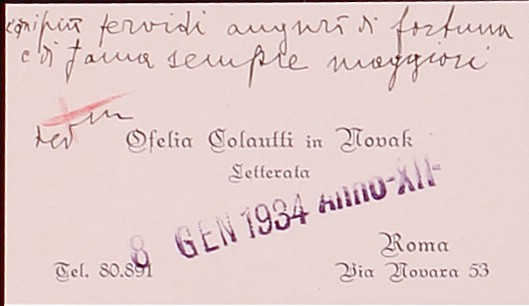 più fervidi auguri di fortuna
e di fama sempre maggiori
Ofelia Colautti in Novak
Letterata
8 GEN 1934 Anno-XII-
Roma
Tel. 80.891
Via Novara 53